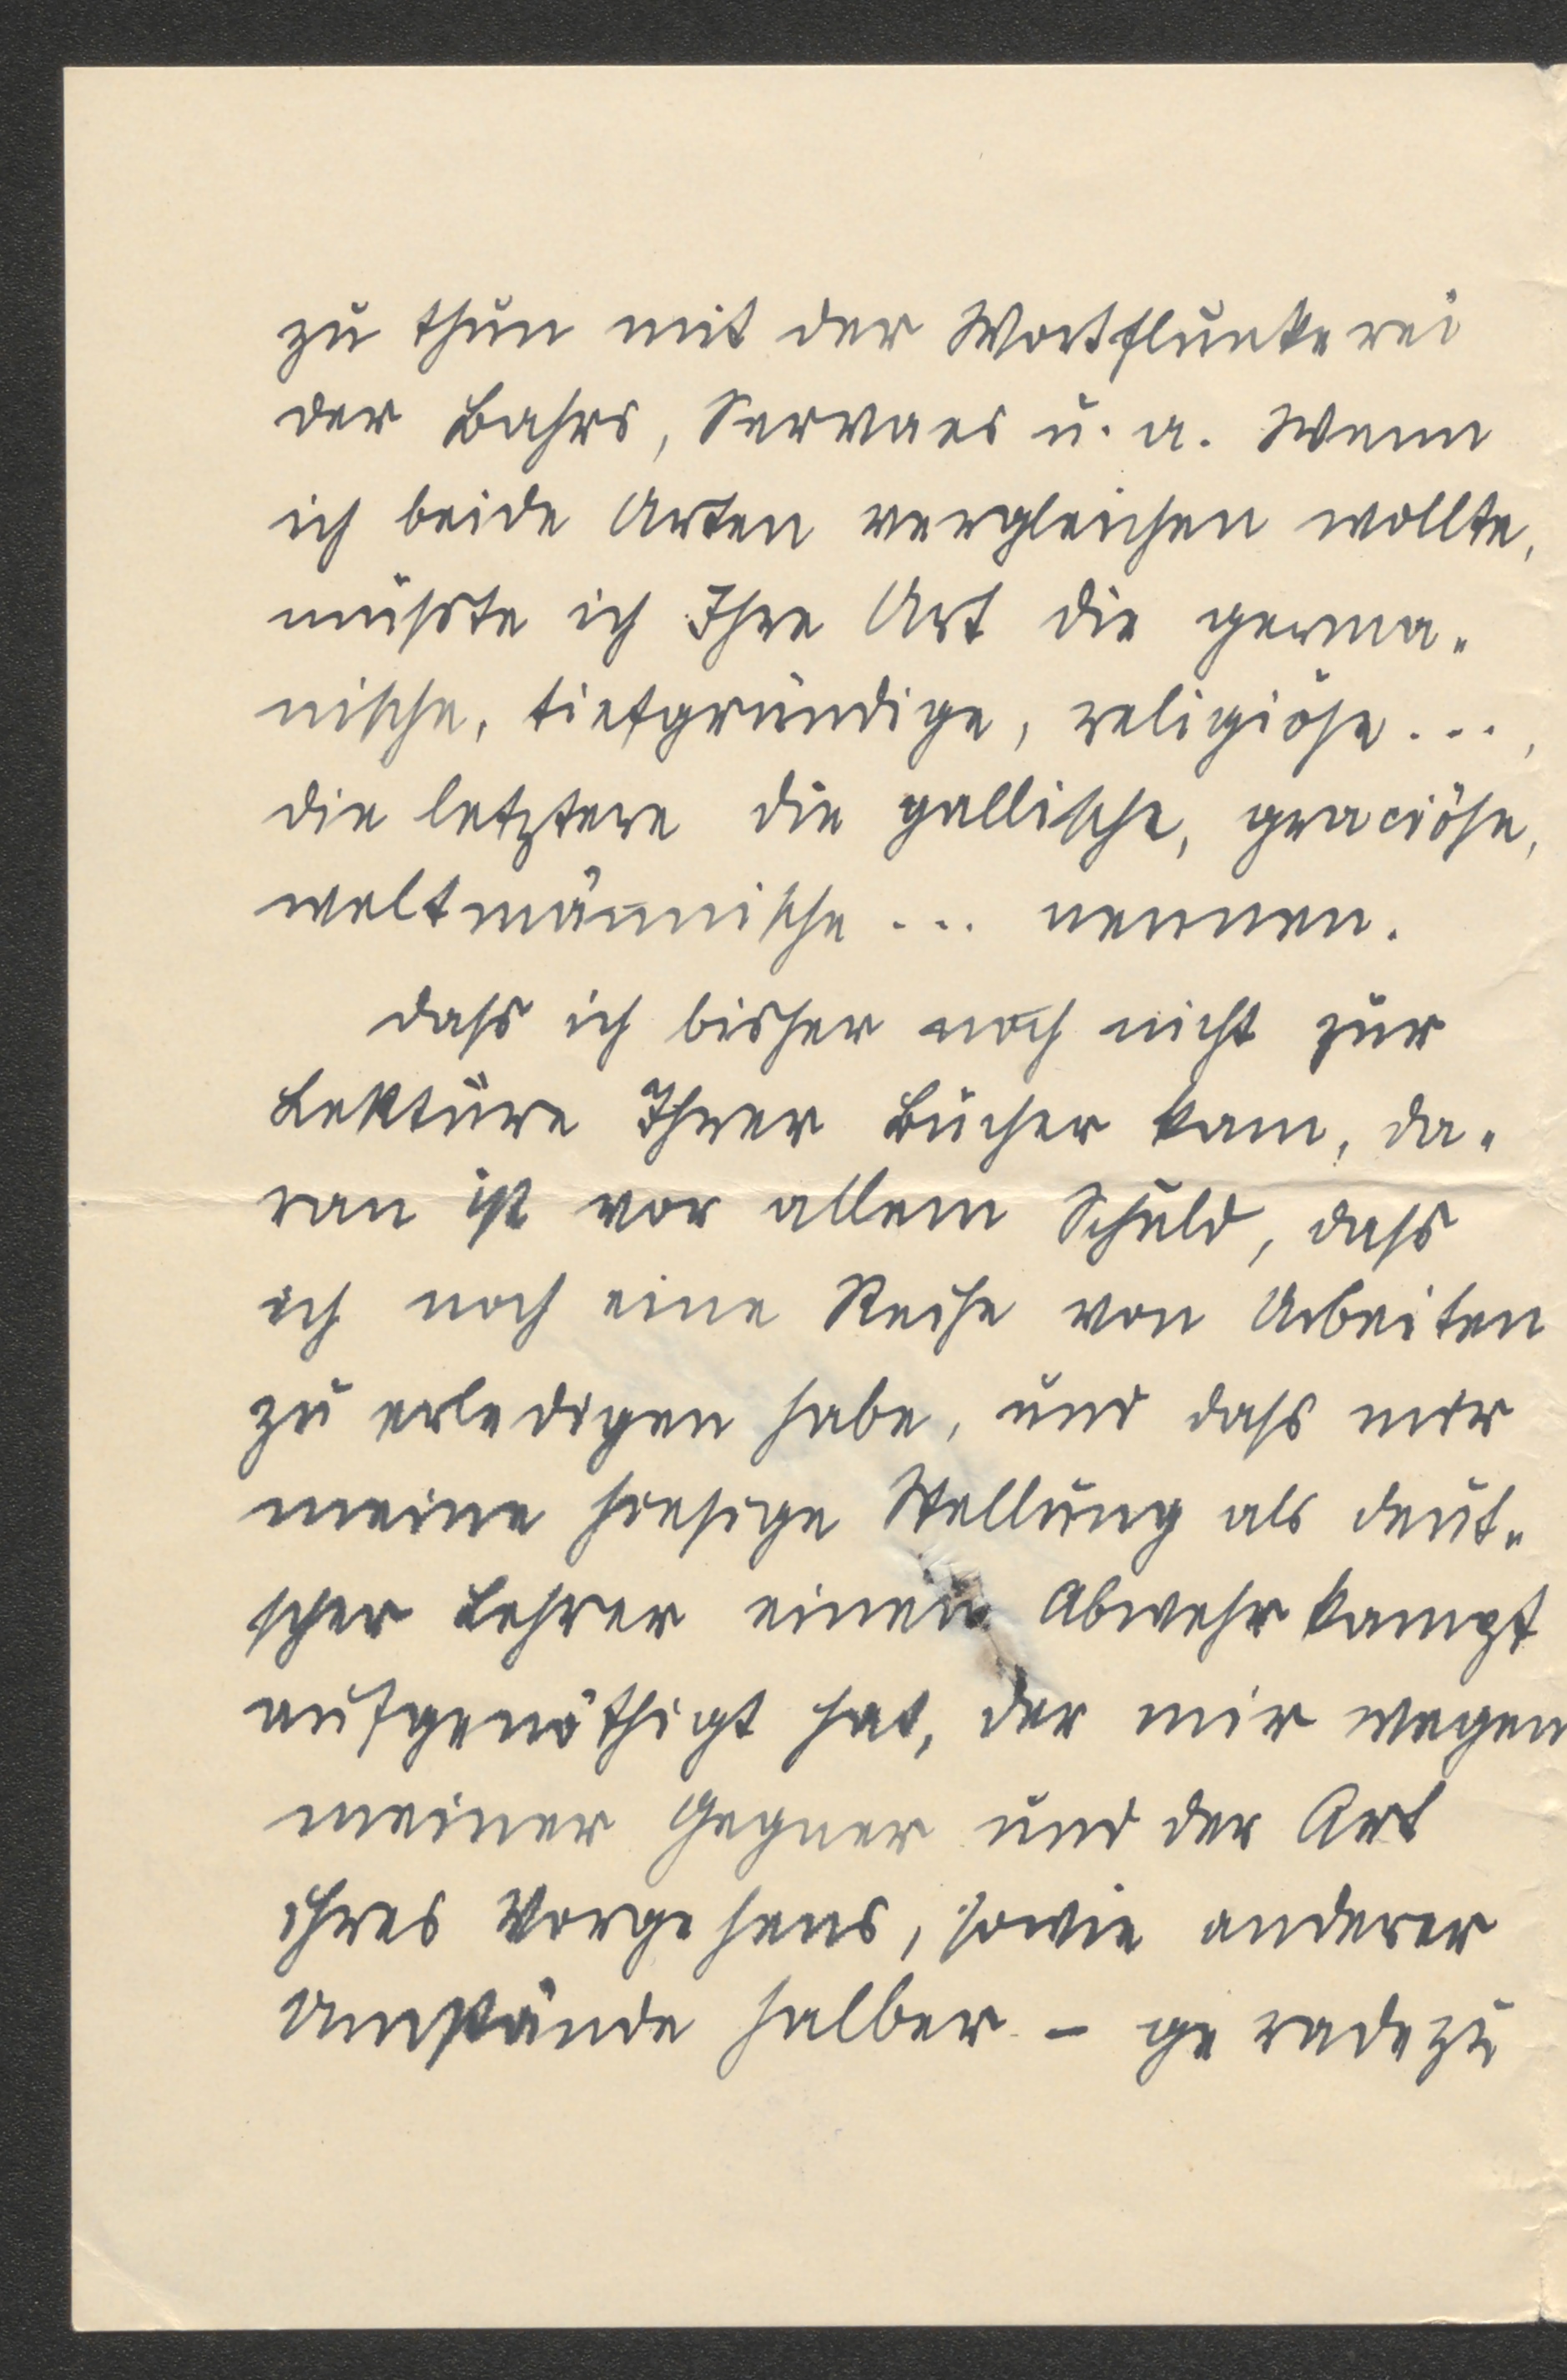 zu thun mit der Wortflunkerei
der Bahrs, Servaes u. a. Wenn
ich beide Arten vergleichen wollte,
müsste ich Ihre Art die germa-
nische, tiefgründige, religiöse...,
die letztere die gallische, graciöse,
weltmännische ... nennen.
Dass ich bisher noch nicht zur
Lektüre Ihrer Bücher kam, da-
ran ist vor allem Schuld, dass
ich noch eine Reihe von Arbeiten
zu erledigen habe, und dass mir
meine hiesige Stellung als deut-
scher Lehrer einen Abwehrkampf
aufgenöthigt hat, der mir wegen
meiner Gegner und der Art
ihres Vorgehens, sowie anderer
Umstände halber – geradezu